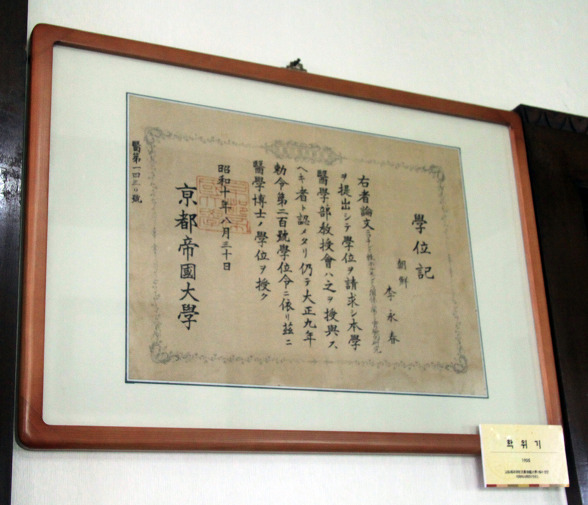 學位記
朝鮮
李永春
右者論文
ヲ提出シテ學位ヲ請求シ本學
醫學部教授會ハ之ヲ授與ス
ヘキ者ト認メタリ仍テ大正九年
勅令第二百號學位令ニ依リ茲ニ
醫學博士ノ學位ヲ授ク
昭和十年八月三十日
京都帝國大學
학위기